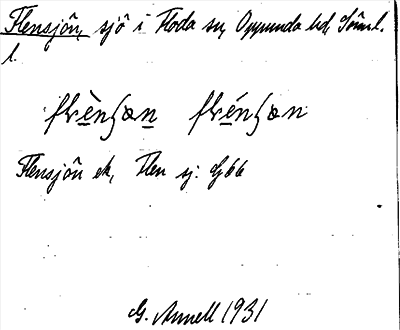 Flensjön, sjö i Floda sn, Oppunda hd, Söml.
l.
flènʃøn flénʃøn
Flensjön ek, Flen sj: Gbb
G. Annell 1931